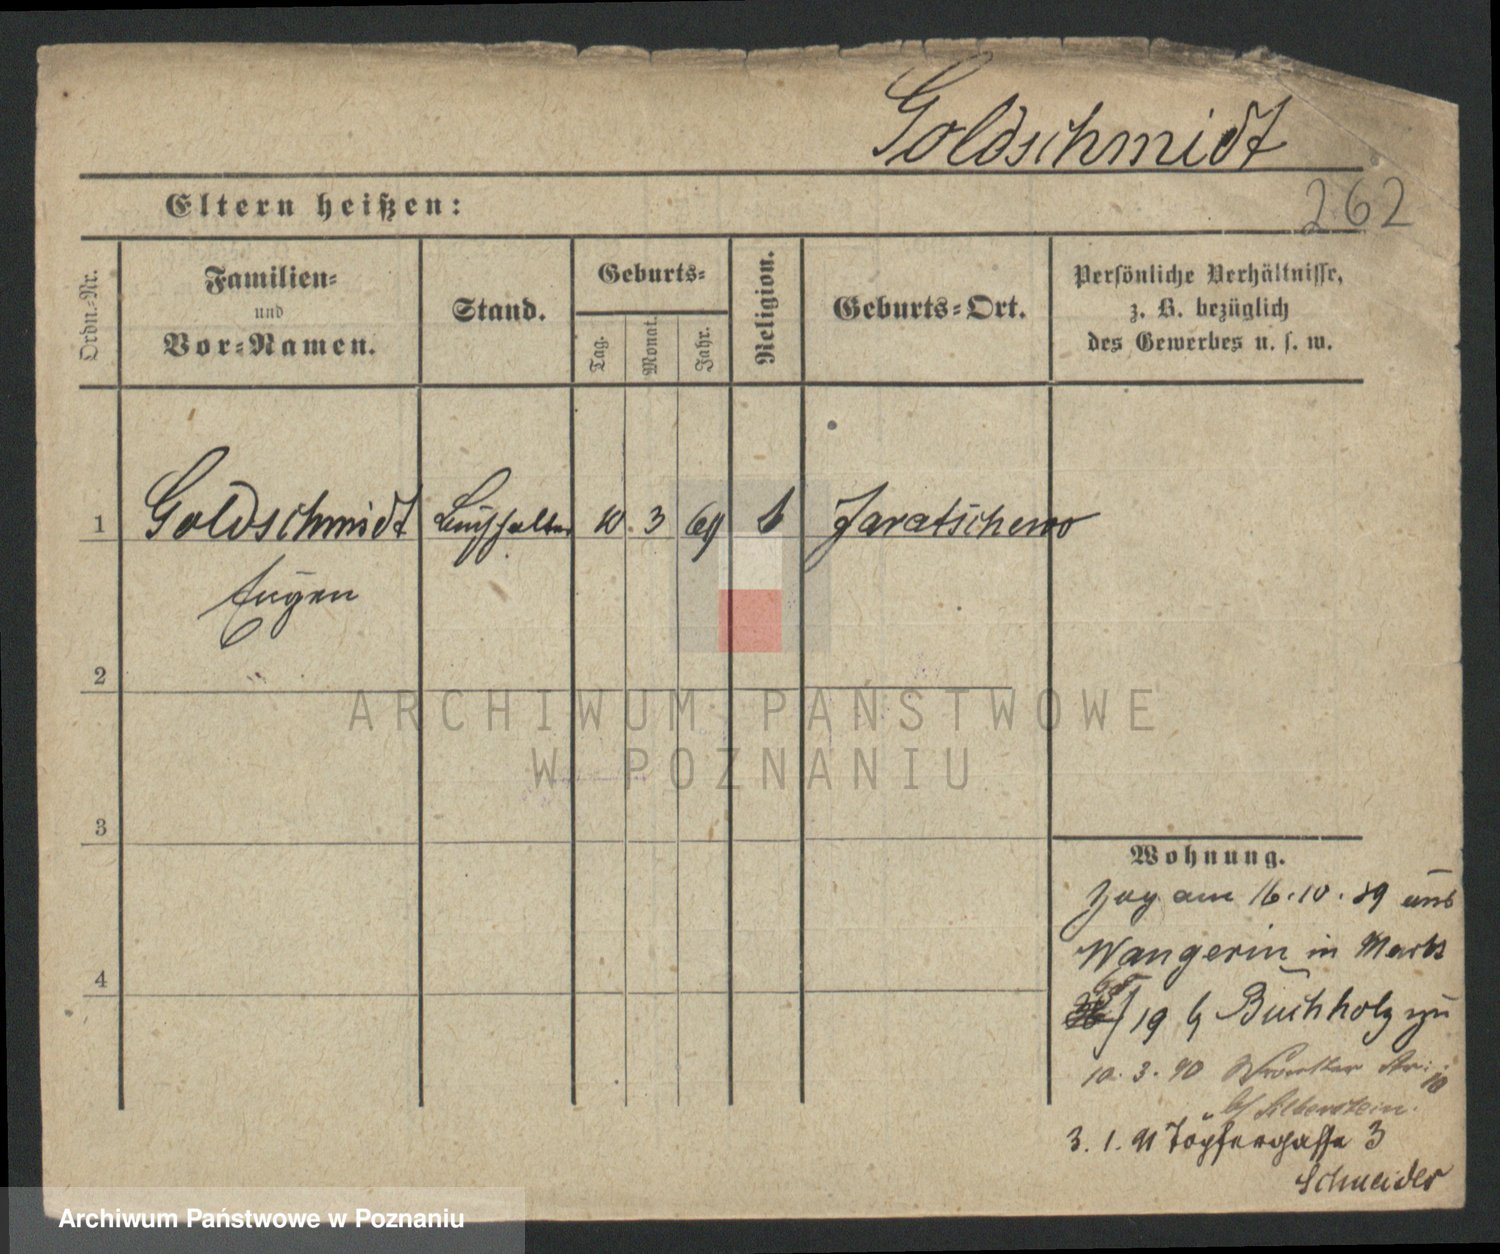 Goldschmidt
262
Eltern heißen:
Ordn.-Nr.
Familien-
und
Vor-Namen.
Stand.
Geburts-
Tag.
Monat.
Jahr.
Religion.
Geburts-Ort.
Persönliche Verhältnisse,
z. B. bezüglich
des Gewerbes u. s. w.
1 Goldschmidt Buchhalter 10 3 69 Jaratschewo
Eugen
2
3
4
ARCHIWUM PAŃSTWOWE
W POZNANIU
Wohnung.
Zog am 16.10.89 aus
Wangerin in Markt
19 b/ Buchholz zu
10.3.90 10
b/ Silberstein.
3.1.91 Töpfergasse 3
Schneider
Archiwum Państwowe w Poznaniu